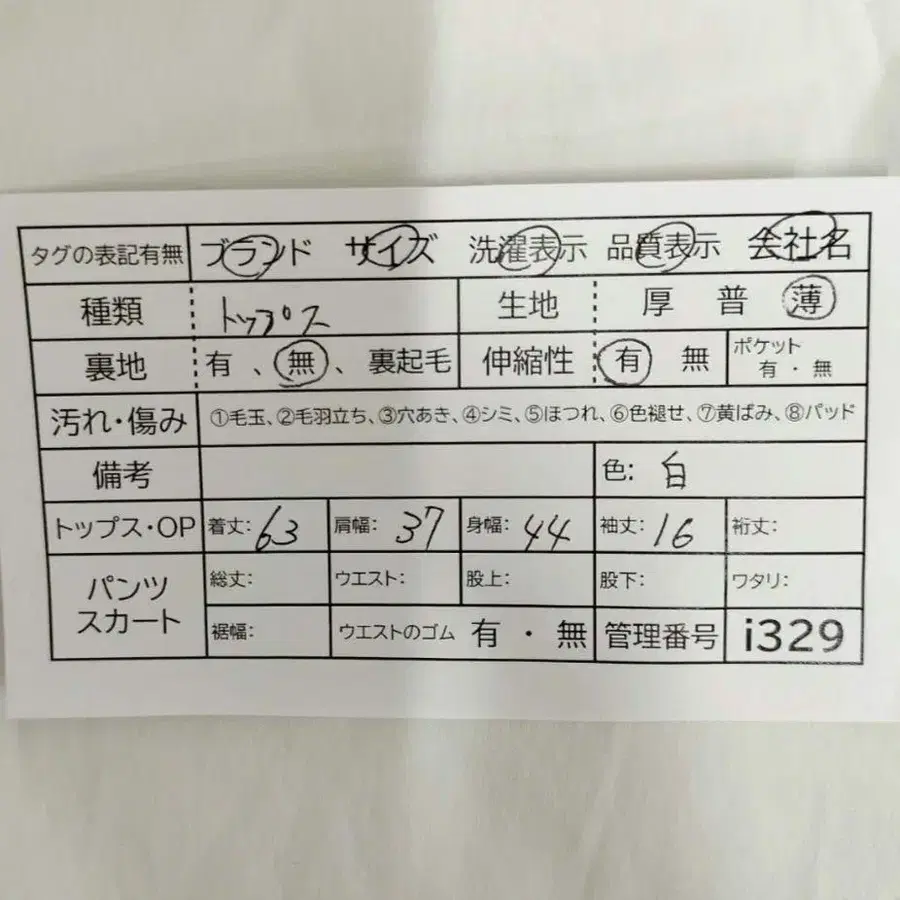 タグの表記有無 ブランド サイズ 洗濯表示 品質表示 会社名
種類 トップス 生地 厚 普 薄
裏地 有、無、裏起毛 伸縮性 有 無 ポケット 有・無
汚れ・傷み ①毛玉、②毛羽立ち、③穴あき、④シミ、⑤ほつれ、⑥色褪せ、⑦黄ばみ、⑧パッド
備考 色: 白
トップス・OP 着丈: 63 肩幅: 37 身幅: 44 袖丈: 16 裄丈:
パンツ スカート 総丈: ウエスト: 股上: 股下: ワタリ:
裾幅: ウエストのゴム 有・無 管理番号 i329